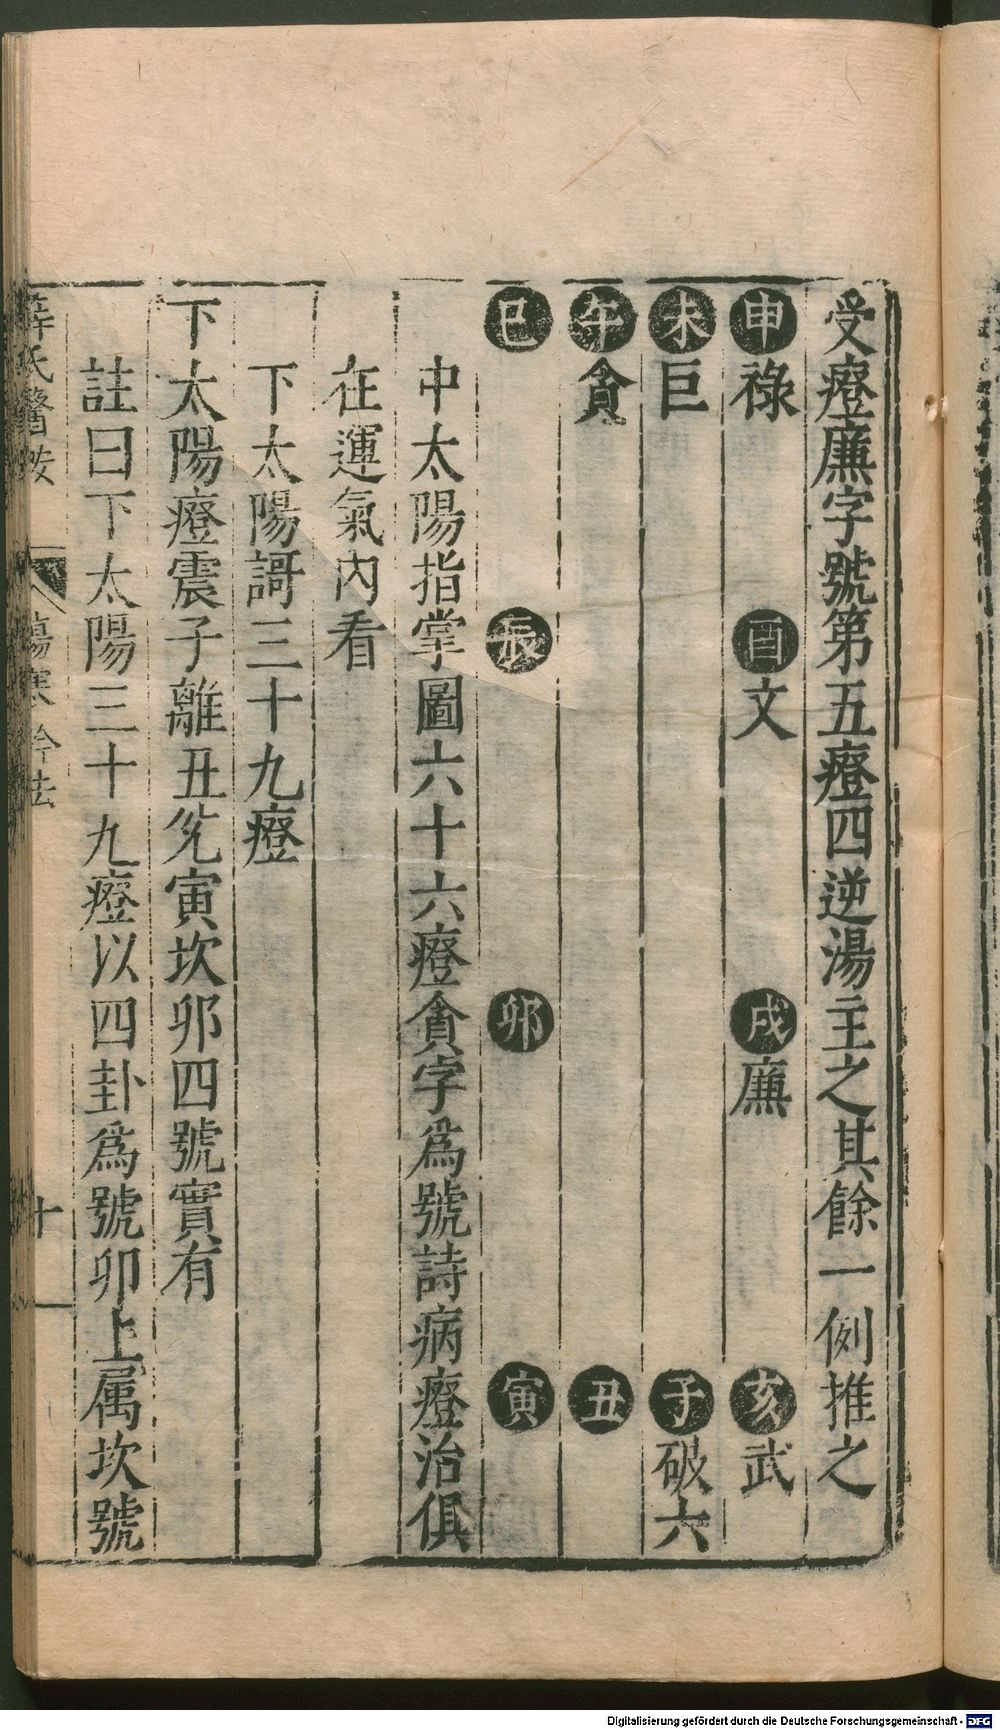 受癧廉字號第五癧四逆湯主之其餘一例推之
申祿 酉文 戌廉 亥武
未巨 子破六
午貪 丑
巳 辰 卯 寅
中太陽指掌圖六十六癧貪字爲號詩病癧治俱
在運氣內看
下太陽謌三十九癧
下太陽癧震子離丑兊寅坎卯四號實有
註曰下太陽三十九癧以四卦爲號卯上属坎號
薛氏醫按 傷寒鈐法 十
Digitalisierung gefördert durch die Deutsche Forschungsgemeinschaft - DFG